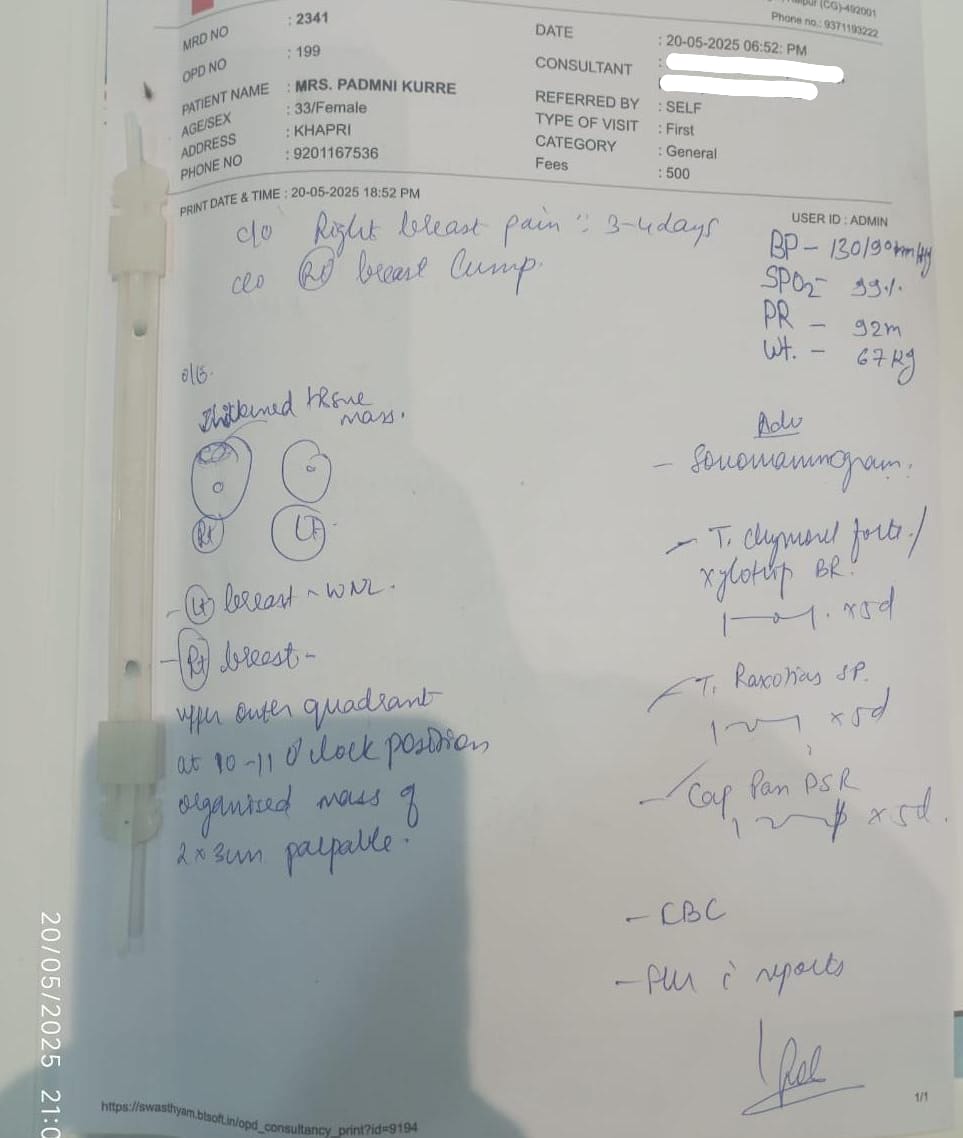 (CG)-492001
Phone no.: 9371193222
MRD NO : 2341
DATE : 20-05-2025 06:52: PM
OPD NO : 199
CONSULTANT :
PATIENT NAME : MRS. PADMNI KURRE
REFERRED BY : SELF
AGE/SEX : 33/Female
TYPE OF VISIT : First
ADDRESS : KHAPRI
CATEGORY : General
PHONE NO : 9201167536
Fees : 500
PRINT DATE & TIME : 20-05-2025 18:52 PM
USER ID : ADMIN
c/o Right breast pain :: 3-4days
c/o Rt breast lump.
BP - 130/90mmHg
SPO2 - 99%
PR - 92m
Wt. - 67kg
o/e.
thickened tissue
mass.
Rt Lt
- Lt breast ~ WNL.
- Rt breast -
upper outer quadrant
at 10-11 O'clock position
organised mass of
2x3cm palpable.
Adv
- Sonomammogram.
- T. chymoral forte/
BR.
x5d
T. SP.
x5d
- Cap Pan DSR
x5d.
- CBC
- c̄ reports
1/1
https://swasthyam.btsoft.in/opd_consultancy_print?id=9194
20/05/2025 21:0